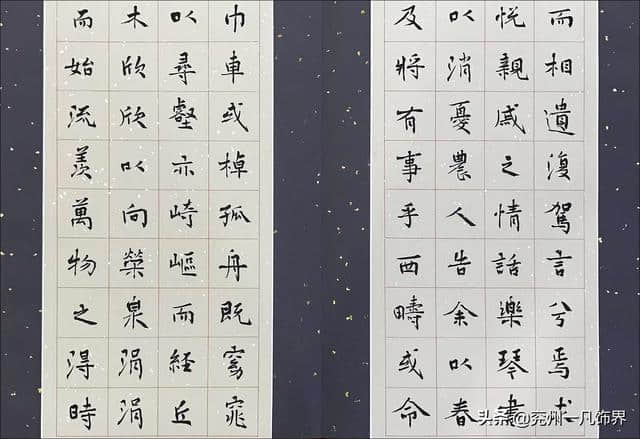 而相遺復駕言兮焉求
悅親戚之情話樂琴書
以消憂農人告余以春
及將有事乎西疇或命
巾車或棹孤舟既窈窕
以尋壑亦崎嶇而經丘
木欣欣以向榮泉涓涓
而始流羨萬物之得時
头条@兖州一凡饰界